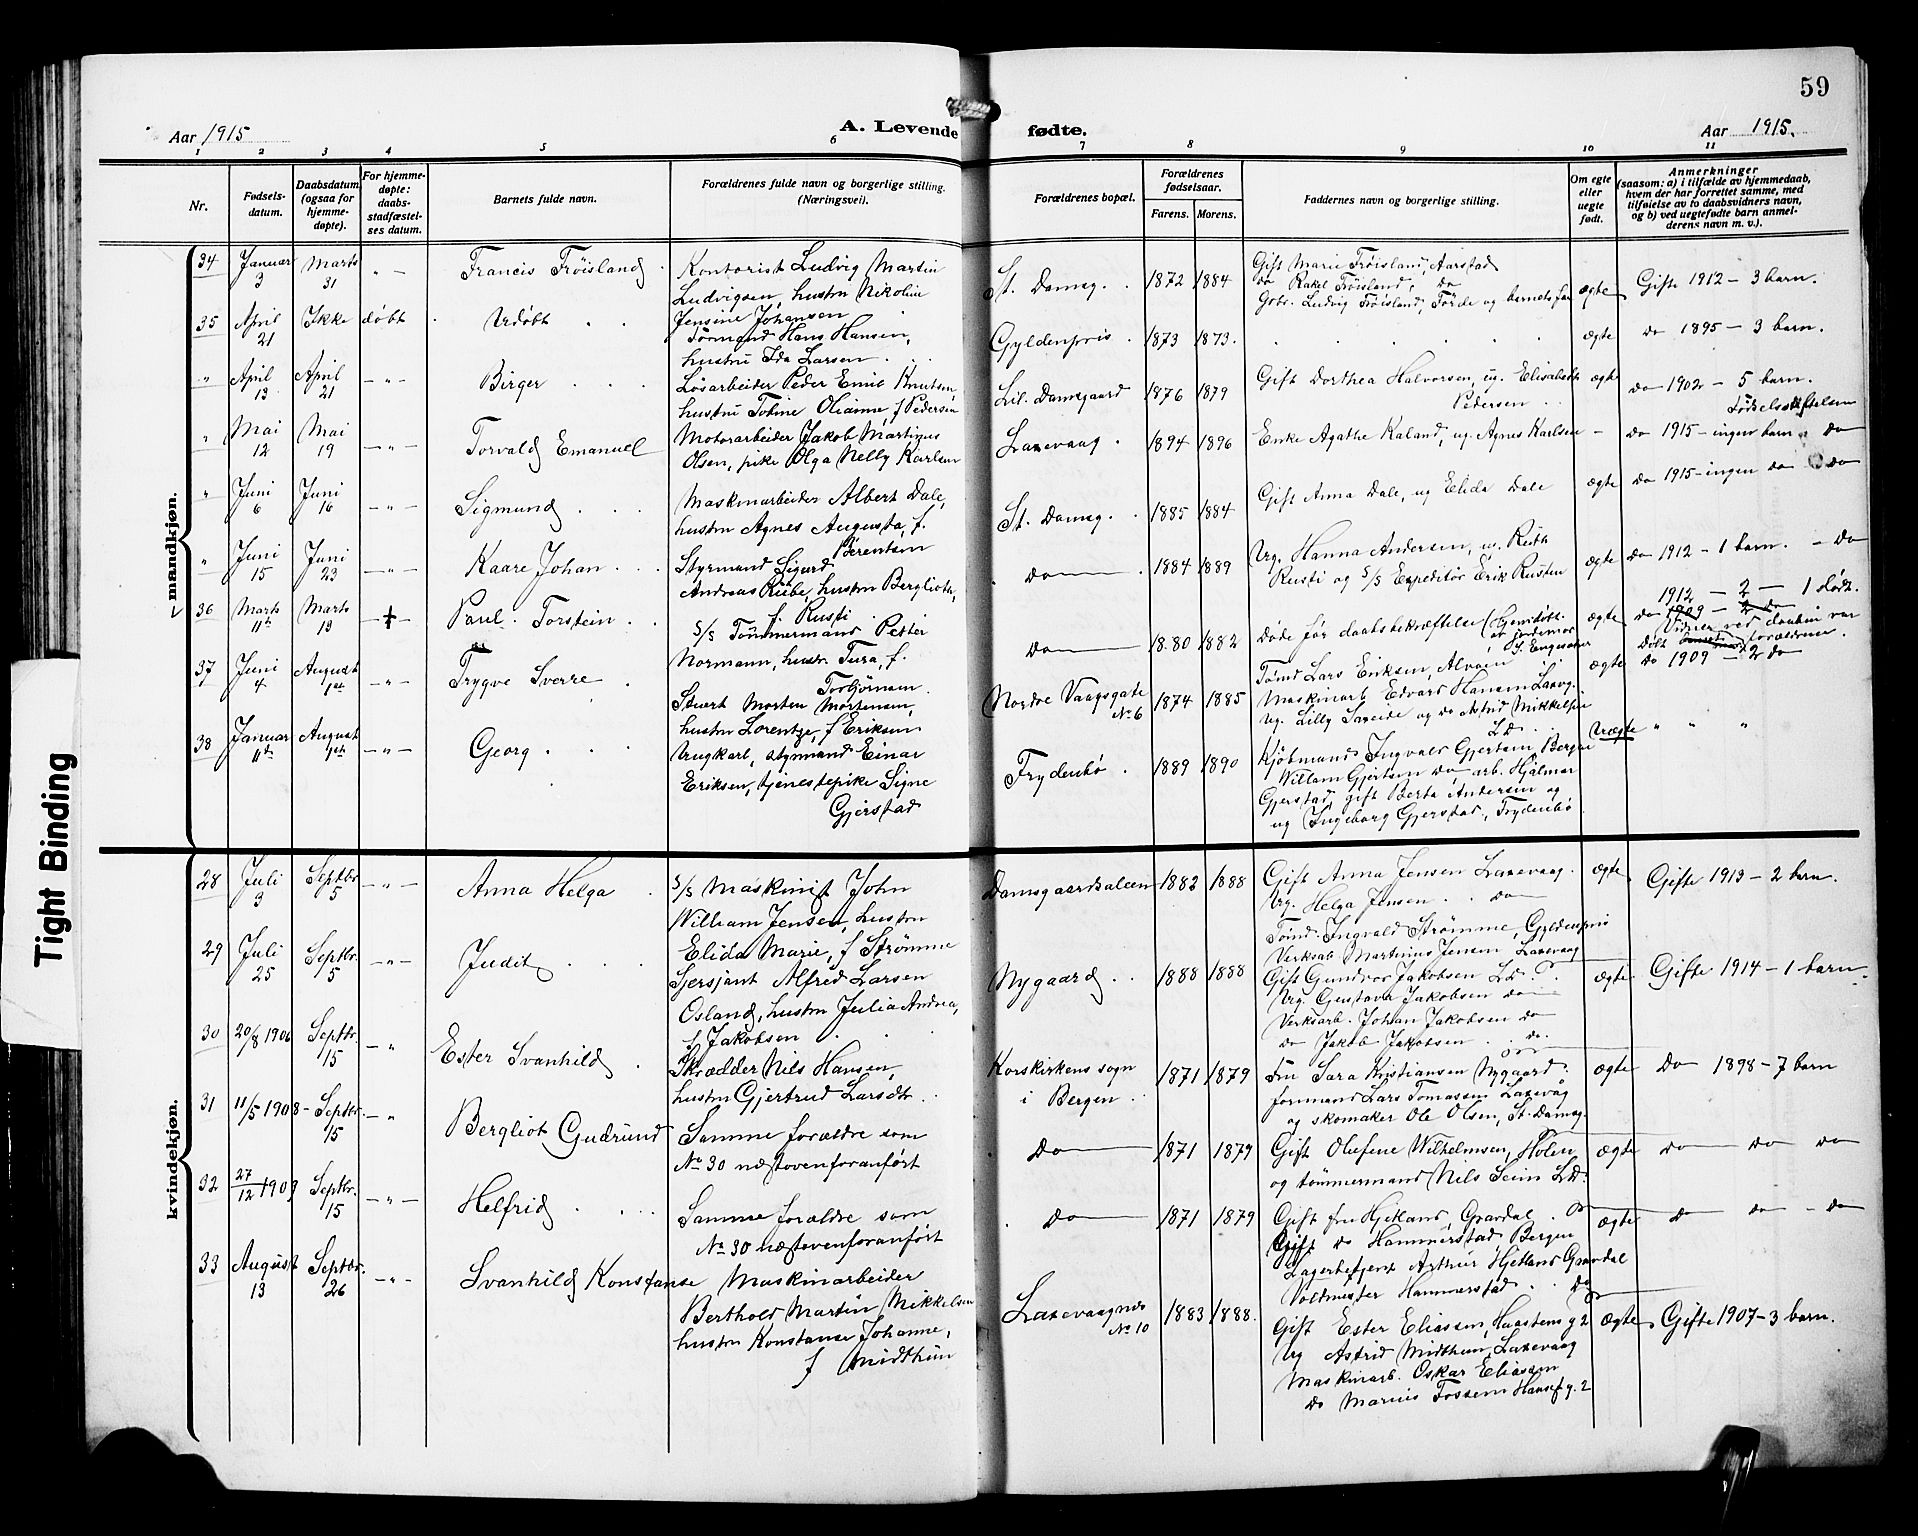 59
Aar 1915
A. Levende
fødte.
Aar 1915.
1 2 3 4 5 6 7 8 9 10 11
Nr.
Fødsels-
datum.
Daabsdatum
(ogsaa for
hjemme-
døpte).
For hjemme-
døpte:
daabs-
stadfæstel-
ses datum.
Barnets fulde navn.
Forældrenes fulde navn og borgerlige stilling.
(Næringsvei).
Forældrenes bopæl.
Forældrenes
fødselsaar.
Farens. Morens.
Faddernes navn og borgerlige stilling.
Om egte
eller
uegte
født.
Anmerkninger
(saasom: a) i tilfælde av hjemmedaab,
hvem der har forrettet samme, med
tilføielse av to daabsvidners navn,
og b) ved uegtefødte barn anmel-
derens navn m. v.).
mandkjøn.
34 Januar 3 Marts 31 - " - Francis Frøisland
Kontorist Ludvig Martin
Ludvigsen, hustru Nikoline
Jensine Johansen
St. Damsg. 1872 1884
Gift Marie Frøisland, Aarstad
Do Rakel Frøisland, Do
Gbr. Ludvig Frøisland, Førde og barnets far
ægte Gifte 1912 - 3 barn.
35 April 21 Ikke døbt Udøbt
Formand Hans Hansen,
hustru Ida Larsen
Gyldenpris 1873 1873.
ægte Do 1895 - 3 barn.
" April 13 April 21 - " - Birger
Løsarbeider Peder Emil Knutsen,
hustru Tobine Olianne, f Pedersen
Lil. Damsgaard 1876 1879
Gift Dorthea Halvorsen, ug. Elisabeth
Pedersen
ægte Do 1902 - 5 barn.
Fødselsstiftelsen
" Mai 12 Mai 19 - " - Torvald Emanuel
Motorarbeider Jakob Martinus
Olsen, pike Olga Nelly Karlsen
Laxevaag 1894 1896
Enke Agathe Kaland, ug. Agnes Karlsen
- Do 1915 - ingen barn. Do
" Juni 6 Juni 16 - " - Sigmund
Maskinarbeider Albert Dale,
hustru Agnes Augusta, f.
Berentsen
St. Damsg. 1885 1884
Gift Anna Dale, ug Elida Dale
ægte Do 1915 - ingen do Do
" Juni 15 Juni 23 - " - Kaare Johan
Styrmand Sigurd
Andreas Rube, hustru Bergliot,
f. Rusti
Do 1884 1889
Ug. Hanna Andersen, ug. Ruth
Rusti og S/S Expeditør Erik Rusten
ægte Do 1912 - 1 barn. - Do
36 Marts 11te Marts 13 Paul Torstein
S/S Tømmermand Petter
Normann, hustru Tura, f.
Torbjørnsen
Do 1880 1882
Døde før daabsbekræftelse (Hjemdøbt
av jordemor
S. Engesæter
ægte 1912 - 2 - 1 dødt.
Do 1909 - 2 do
Vidner ved daaben var
Døbt forældrene.
37 Juni 4 August 1ste - " - Trygve Sverre
Stuert Morten Mortensen,
hustru Lorentze, f Eriksen
Nordre Vaagsgate
No 6
1874 1885
Tømd Lars Eriksen, Alvøen
Maskinarb Edvard Hansen Laxvg.
Ug. Lilly Saxeide og Do Astrid Mikkelsen
Ld
ægte Do 1909 - 2 do
38 Januar 11te August 1ste - " - Georg
Ungkarl, styrmand Einar
Eriksen, tjenestepike Signe
Gjerstad
Frydenbø 1889 1890
Kjøbmand Ingvald Gjertsen, Bergen
Willam Gjertsen Do arb. Hjalmar
Gjerstad, gift Berta Andersen og
ug Ingeborg Gjerstad, Frydenbø
Uægte " " "
kvindekjøn.
28 Juli 3 Septbr 5 - " - Anna Helga
S/S Maskinist John
William Jensen, hustru
Elida Marie, f Strømme
Damsgaardsaleen 1882 1888
Gift Anna Jensen Laxevaag.
Ug. Helga Jensen Do
Tømd. Ingvald Strømme, Gyldenpris
Verksab Martinius Jensen Laxevaag
ægte Gifte 1913 - 2 barn.
29 Juli 25 Septbr. 5 - " - Judit
Sersjant Alfred Larsen
Osland, hustru Julia Andrea,
f Jakobsen
Nygaard 1888 1888
Gift Gundvor Jakobsen Ld
Ug. Gustava Jakobsen Do
Verksarb. Johan Jakobsen Do
Do Jakob Jakobsen Do
ægte Gifte 1914 - 1 barn.
30 20/8 1906 Septbr 15 - " Ester Svanhild
Skrædder Nils Hansen,
hustru Gjertrud Larsdtr
Korskirkens sogn
i Bergen
1871 1879
Fru Sara Kristiansen Nygaard.
formand Lars Tomassen Laxevåg
og skomaker Ole Olsen, St. Damsg.
ægte Do 1898 - 7 barn
31 11/5 1908 - Septbr 15 - " Bergliot Gudrund
Samme forældre som
No 30 næstovenforanført
Do 1871 1879
Gift Olufine Wilhelmsen, Holen
og tømmermand Nils Seim Ld.
ægte Do Do Do
32 27/12 1903 Septbr. 15 - " - Helfrid
Samme forældre som
No 30 næstovenforanført
Do 1871 1879
Gift fru Hjetland, Gravdal
Gift Do Hammerstad Bergen
Lagerbetjent Arthur Hjetland Gravdal
Voldmester Hammerstad Do
ægte Do Do - Do
33 August 13 Septbr. 26 - " - Svanhild Konstanse
Maskinarbeider
Berthold Martin Mikkelsen
hustru Konstanse Johanne,
f Midthun
Laxevaagnes
No 10
1883 1888.
Gift Ester Eliassen, Haastens g 2
Ug Astrid Midthun, Laxevaag
Maskinarb. Oskar Eliassen
Do Marius Fossem Hansef g. 2
ægte Gifte 1907 - 3 barn.
Tight Binding